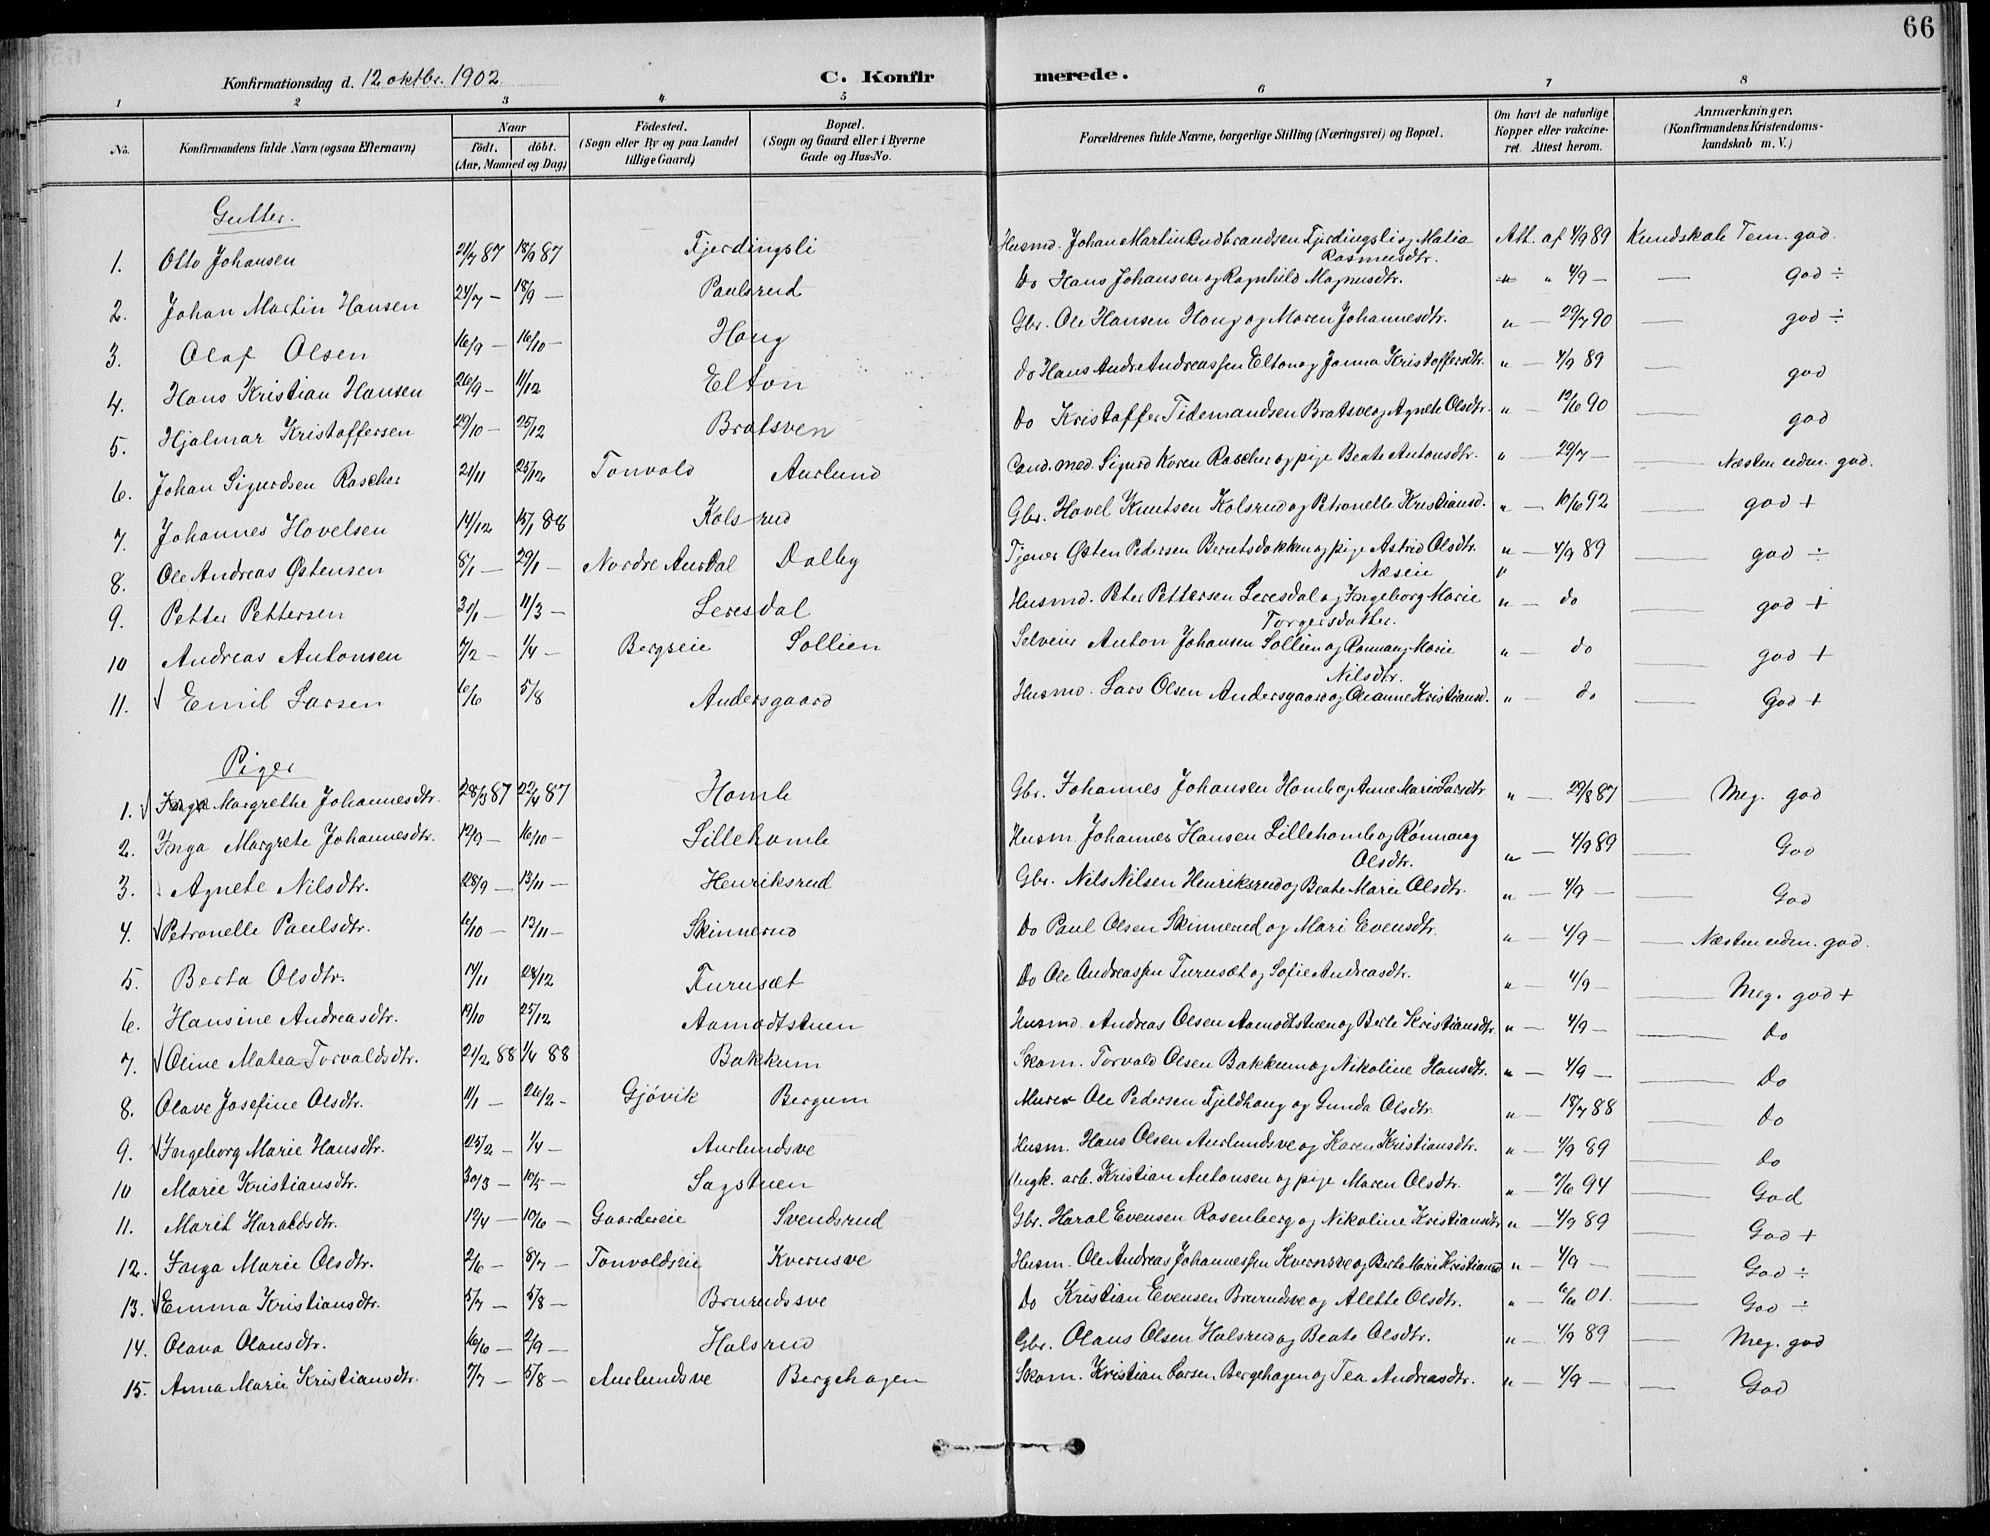 66
Konfirmationsdag d. 12 oktbr. 1902. C. Konfirmerede.
1 2 3 4 5 6 7 8
No. Konfirmandens fulde Navn (ogsaa Efternavn) Naar født. døbt. (Aar, Maaned og Dag) Fødested. (Sogn eller By og paa Landet tillige Gaard) Bopæl. (Sogn og Gaard eller i Byerne Gade og Hus-No. Forældrenes fulde Navne, borgerlige Stilling (Næringsvei) og Bopæl. Om havt de naturlige Kopper eller vakcineret. Attest herom. Anmærkninger. (Konfirmandens Kristendomskundskab m. V.)
Gutter.
1. Otto Johansen 21/7 87 18/9 87 Fjerdingsli Husmd. Johan Martin Gudbrandsen Fjerdingsli og Matia Rasmusdtr. Att. af 4/9 89 Kundskab Tem. god.
2. Johan Martin Hansen 24/7 — 18/9 — Paulsrud Do Hans Johansen og Ragnhild Magnusdtr. " 4/9 — — god ÷
3. Olaf Olsen 16/9 — 16/10 — Houg Gbr. Ole Hansen Houg og Maren Johannesdtr. " — 29/7 90 — god ÷
4. Hans Kristian Hansen 26/9 — 11/12 Elton do Hans Andr. Andreassen Elton og Janna Kristoffersdtr. " — 4/9 89 — god
5. Hjalmar Kristoffersen 29/10 — 25/12 Bratsven Do Kristoffer Tidemandsen Bratsve og Agnete Olsdtr. " — 12/6 90 — god
6. Johan Sigurdsen Rascher 21/11 25/12 Tonvold Aurlund Cand. med. Sigurd Koren Rascher og pige Beate Antonsdtr. " — 29/7 — — Næsten udm. god.
7. Johannes Hovelsen 14/12 15/1 88 Kolsrud Gbr. Hovel Knutsen Kolsrud og Petronelle Kristiansd. " — 10/6 92 — god +
8. Ole Andreas Østensen 8/1 — 29/1 — Nordre Aurdal Dalby Tjener Østen Pedersen Beretsdokken og pige Astrid Olsdtr. Næseie " — 4/9 89 — god ÷
9. Petter Pettersen 31/1 — 11/3 — Leresdal Husmd. Peter Pettersen Leresdal og Ingeborg Marie Torgersdatter. " — do — god +
10 Andreas Antonsen 7/2 — 1/4 — Bergseie Sollien Selveier Anton Johansen Sollien og Rønnaug Marie Nilsdtr. " — do — god +
11. Emil Larsen 16/6 5/8 Andersgaard Husmd. Lars Olsen Andersgaard og Oleanne Kristiansd. " — do — God +
Piger
1. Inga Margrethe Johannesdtr. 28/3 87 22/4 87 Homb Gbr. Johannes Johansen Homb og Anne Marie Larsdtr " — 29/8 87 — Meg. god
2. Inga Margrete Johannesdtr. 12/9 — 16/10 — Lillehomb Husm. Johannes Hansen Lillehomb og Rønnaug Olsdtr. " — 4/9 89 — God
3. Agnete Nilsdtr. 28/9 — 13/11 — Henriksrud Gbr. Nils Nilsen Henriksrud og Beate Marie Olsdtr. " — 4/9 — — God
4. Petronelle Paulsdtr. 6/10 — 13/11 — Skinnerud Do Paul Olsen Skinnerud og Mari Evensdtr. " — 4/9 — — Næsten udm. god.
5. Berta Olsdtr. 14/11 28/12 Furusæt Do Ole Andreassen Furusæt og Sofie Andreasdtr. " — 4/9 — — Meg. god +
6. Hansine Andreasdtr. 19/10 25/12 Aamodtstuen Husmd. Andreas Olsen Aamodtstuen og Berte Kristiansdtr. " — 4/9 — — Do
7. Oline Matea Torvaldsdtr. 21/2 88 1/4 88 Bakkum Skom. Torvald Olsen Bakkum og Nikoline Hansdtr. " — 4/9 — — Do
8. Olave Josefine Olsdtr. 11/1 — 26/2 — Gjøvik Bergum Murer Ole Pedersen Fjeldhoug og Gunda Olsdtr. " — 18/7 88 — Do
9. Ingeborg Marie Hansdtr. 25/2 — 1/4 — Aurlundsve Husm. Hans Olsen Aurlundsve og Karen Kristiansdtr. " — 4/9 89 — Do
10 Marie Kristiansdtr. 30/3 — 10/5 — Sagstuen Ungk. arb. Kristian Antonsen og pige Maren Olsdtr. " — 7/6 94 — God
11. Marit Haraldsdtr. 19/4 — 10/6 — Gaardereie Svendsrud Gbr. Haral Evensen Rosenberg og Nikoline Kristiansdtr " — 4/9 89 — God +
12. Inga Marie Olsdtr. 2/6 — 8/7 — Tonvoldseie Kvernsve Husm. Ole Andreas Johannessen Kvernsve og Berte Marie Kristiansd " — 4/9 — — God ÷
13. Emma Kristiansdtr. 5/7 — 5/8 — Brurudsve Do Kristian Evensen Brurudsve og Alette Olsdtr. " — 6/6 01. — God ÷
14. Olava Olausdtr. 16/6 — 2/9 — Halsrud Gbr. Olaus Olsen Halsrud og Beate Olsdtr. " — 4/9 89 — Meg. god
15. Anna Marie Kristiansdtr. 7/7 — 5/8 — Aurlundsve Bergehagen Skom. Kristian Larsen Bergehagen og Tea Andreasdtr. " — 4/9 — — God